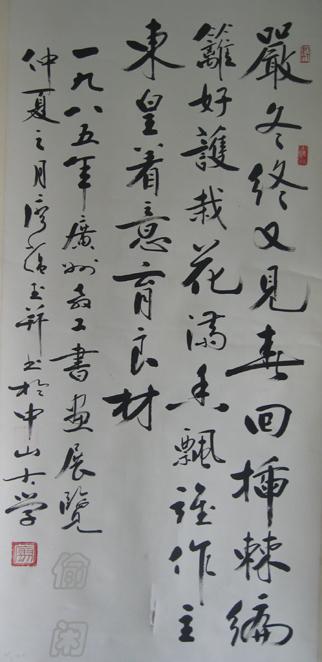 嚴冬終又見春回插棘編
籬好護栽花滿香飄誰作主
東皇着意育良材
一九八五年廣州教工書畫展覽
仲夏之月并书於中山大学
偷闲